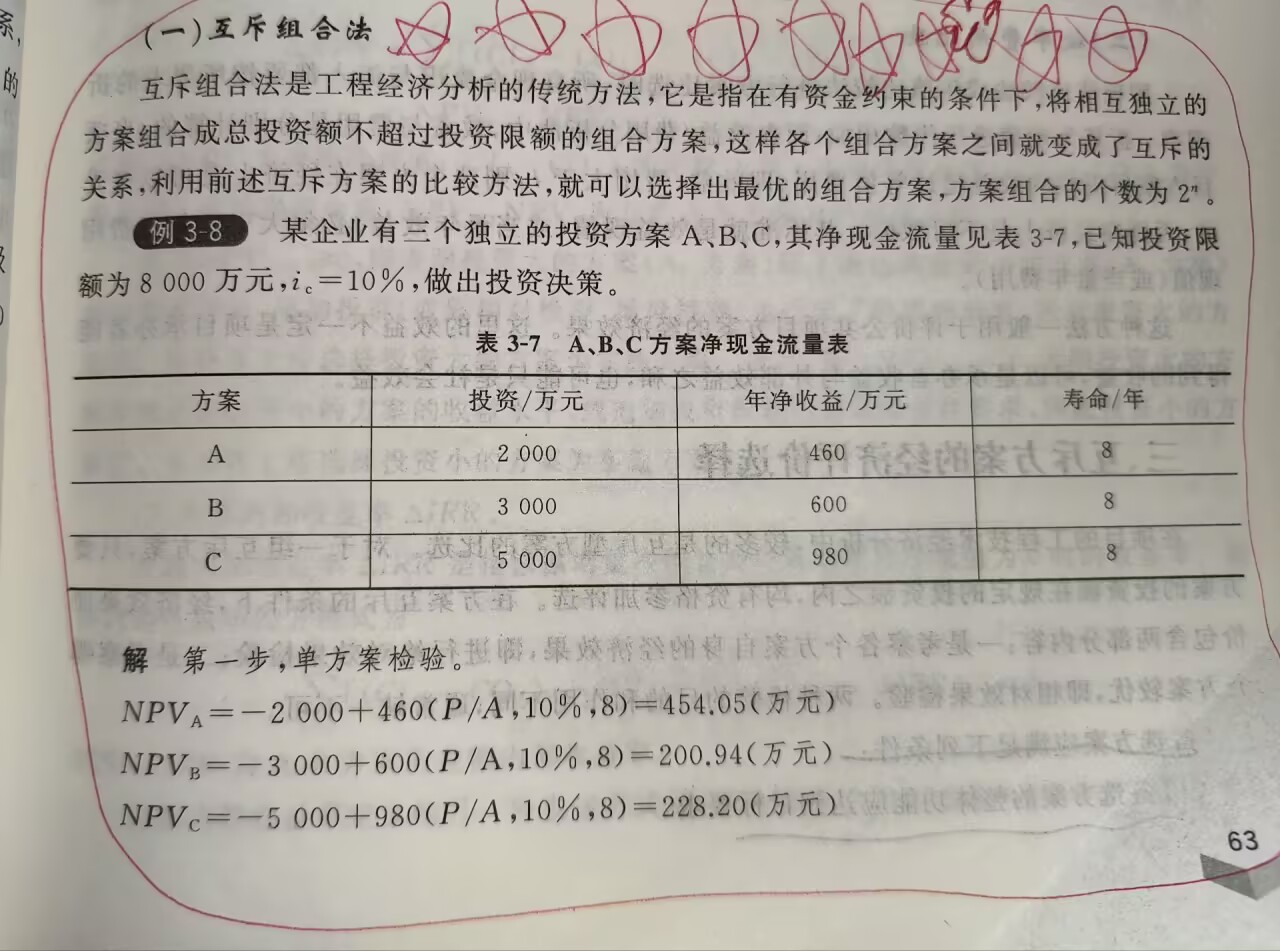 系,
的
(一)互斥组合法
互斥组合法是工程经济分析的传统方法,它是指在有资金约束的条件下,将相互独立的
方案组合成总投资额不超过投资限额的组合方案,这样各个组合方案之间就变成了互斥的
关系,利用前述互斥方案的比较方法,就可以选择出最优的组合方案,方案组合的个数为 2ⁿ。
例 3-8 某企业有三个独立的投资方案 A、B、C,其净现金流量见表 3-7,已知投资限
额为 8 000 万元,i_c=10%,做出投资决策。
表 3-7 A、B、C 方案净现金流量表
方案 投资/万元 年净收益/万元 寿命/年
A 2 000 460 8
B 3 000 600 8
C 5 000 980 8
解 第一步,单方案检验。
NPV_A=-2 000+460(P/A,10%,8)=454.05(万元)
NPV_B=-3 000+600(P/A,10%,8)=200.94(万元)
NPV_C=-5 000+980(P/A,10%,8)=228.20(万元)
63